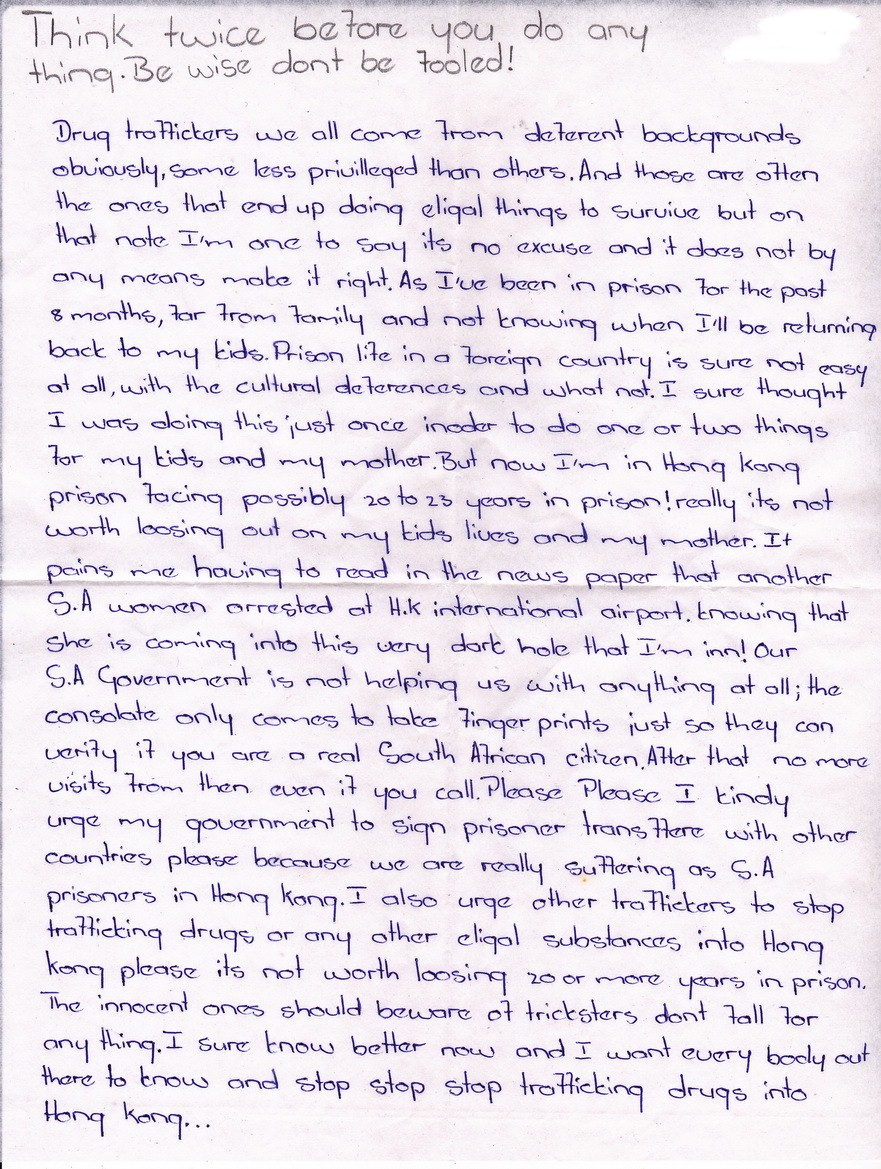 Think twice before you do any
thing. Be wise dont be fooled!
Drug traffickers we all come from deferent backgrounds
obviously, some less privilleged than others. And those are often
the ones that end up doing eligal things to survive but on
that note I'm one to say its no excuse and it does not by
any means make it right. As I've been in prison for the past
8 months, far from family and not knowing when I'll be returning
back to my kids. Prison life in a foreign country is sure not easy
at all, with the cultural deferences and what not. I sure thought
I was doing this just once inoder to do one or two things
for my kids and my mother. But now I'm in Hong kong
prison facing possibly 20 to 23 years in prison! really its not
worth loosing out on my kids lives and my mother. It
pains me having to read in the news paper that another
S.A women arrested at H.K international airport. knowing that
she is coming into this very dark hole that I'm inn! Our
S.A Government is not helping us with anything at all; the
consolate only comes to take finger prints just so they can
verify if you are a real South African citizen. After that no more
visits from then even if you call. Please Please I kindy
urge my government to sign prisoner transffere with other
countries please because we are really suffering as S.A
prisoners in Hong Kong. I also urge other traffickers to stop
trafficking drugs or any other eligal substances into Hong
kong please its not worth loosing 20 or more years in prison.
The innocent ones should beware of tricksters dont fall for
any thing. I sure know better now and I want every body out
there to know and stop stop stop trafficking drugs into
Hong Kong...